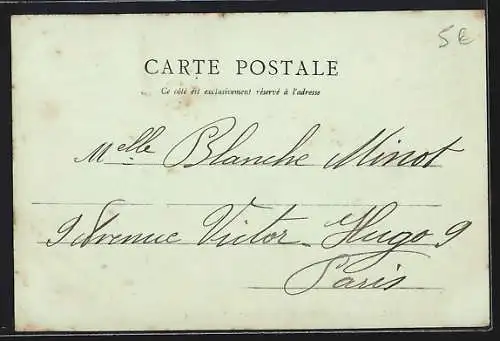 5€
CARTE POSTALE
Ce côté est exclusivement réservé à l'adresse
Melle Blanche Minot
9 Avenue Victor-Hugo 9
Paris